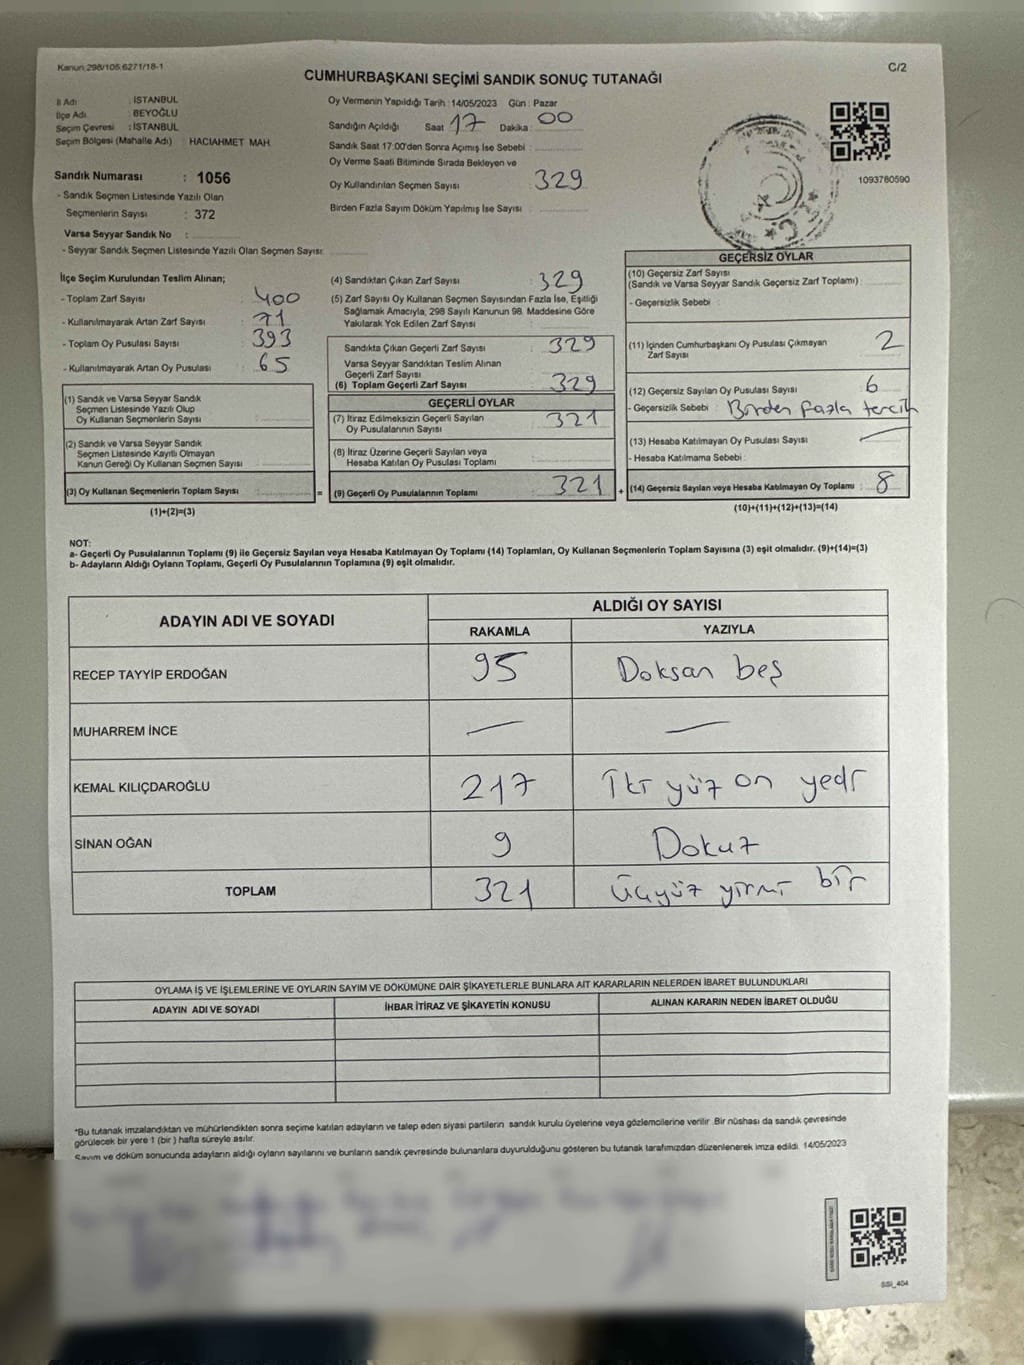 Kanun 298/105,6271/18-1
C/2
CUMHURBAŞKANI SEÇİMİ SANDIK SONUÇ TUTANAĞI
İl Adı : İSTANBUL
İlçe Adı : BEYOĞLU
Seçim Çevresi : İSTANBUL
Seçim Bölgesi (Mahalle Adı) : HACIAHMET MAH.
Sandık Numarası : 1056
- Sandık Seçmen Listesinde Yazılı Olan
Seçmenlerin Sayısı : 372
Varsa Seyyar Sandık No :
- Seyyar Sandık Seçmen Listesinde Yazılı Olan Seçmen Sayısı:
Oy Vermenin Yapıldığı Tarih : 14/05/2023 Gün : Pazar
Sandığın Açıldığı Saat 17 Dakika : 00
Sandık Saat 17:00'den Sonra Açımış İse Sebebi :
Oy Verme Saati Bitiminde Sırada Bekleyen ve
Oy Kullandırılan Seçmen Sayısı : 329
Birden Fazla Sayım Döküm Yapılmış İse Sayısı :
1093780590
İlçe Seçim Kurulundan Teslim Alınan;
- Toplam Zarf Sayısı : 400
- Kullanılmayarak Artan Zarf Sayısı : 71
- Toplam Oy Pusulası Sayısı : 393
- Kullanılmayarak Artan Oy Pusulası : 65
(1) Sandık ve Varsa Seyyar Sandık
Seçmen Listesinde Yazılı Olup
Oy Kullanan Seçmenlerin Sayısı :
(2) Sandık ve Varsa Seyyar Sandık
Seçmen Listesinde Kayıtlı Olmayan
Kanun Gereği Oy Kullanan Seçmen Sayısı :
(3) Oy Kullanan Seçmenlerin Toplam Sayısı :
(1)+(2)=(3)
(4) Sandıktan Çıkan Zarf Sayısı : 329
(5) Zarf Sayısı Oy Kullanan Seçmen Sayısından Fazla İse, Eşitliği
Sağlamak Amacıyla, 298 Sayılı Kanunun 98. Maddesine Göre
Yakılarak Yok Edilen Zarf Sayısı :
Sandıkta Çıkan Geçerli Zarf Sayısı : 329
Varsa Seyyar Sandıktan Teslim Alınan
Geçerli Zarf Sayısı :
(6) Toplam Geçerli Zarf Sayısı : 329
GEÇERLİ OYLAR
(7) İtiraz Edilmeksizin Geçerli Sayılan
Oy Pusulalarının Sayısı : 321
(8) İtiraz Üzerine Geçerli Sayılan veya
Hesaba Katılan Oy Pusulası Toplamı :
= (9) Geçerli Oy Pusulalarının Toplamı : 321 +
GEÇERSİZ OYLAR
(10) Geçersiz Zarf Sayısı
(Sandık ve Varsa Seyyar Sandık Geçersiz Zarf Toplamı) :
- Geçersizlik Sebebi :
(11) İçinden Cumhurbaşkanı Oy Pusulası Çıkmayan
Zarf Sayısı : 2
(12) Geçersiz Sayılan Oy Pusulası Sayısı : 6
- Geçersizlik Sebebi : Birden fazla tercih
(13) Hesaba Katılmayan Oy Pusulası Sayısı : —
- Hesaba Katılmama Sebebi :
(14) Geçersiz Sayılan veya Hesaba Katılmayan Oy Toplamı : 8
(10)+(11)+(12)+(13)=(14)
NOT:
a- Geçerli Oy Pusulalarının Toplamı (9) ile Geçersiz Sayılan veya Hesaba Katılmayan Oy Toplamı (14) Toplamları, Oy Kullanan Seçmenlerin Toplam Sayısına (3) eşit olmalıdır. (9)+(14)=(3)
b- Adayların Aldığı Oyların Toplamı, Geçerli Oy Pusulalarının Toplamına (9) eşit olmalıdır.
ADAYIN ADI VE SOYADI
ALDIĞI OY SAYISI
RAKAMLA YAZIYLA
RECEP TAYYİP ERDOĞAN 95 Doksan beş
MUHARREM İNCE — —
KEMAL KILIÇDAROĞLU 217 İki yüz on yedi
SİNAN OĞAN 9 Dokuz
TOPLAM 321 Üçyüz yirmi bir
OYLAMA İŞ VE İŞLEMLERİNE VE OYLARIN SAYIM VE DÖKÜMÜNE DAİR ŞİKAYETLERLE BUNLARA AİT KARARLARIN NELERDEN İBARET BULUNDUKLARI
ADAYIN ADI VE SOYADI İHBAR İTİRAZ VE ŞİKAYETİN KONUSU ALINAN KARARIN NEDEN İBARET OLDUĞU
*Bu tutanak imzalandıktan ve mühürlendikten sonra seçime katılan adayların ve talep eden siyasi partilerin sandık kurulu üyelerine veya gözlemcilerine verilir. Bir nüshası da sandık çevresinde
görülecek bir yere 1 (bir) hafta süreyle asılır.
Sayım ve döküm sonucunda adayların aldığı oyların sayılarını ve bunların sandık çevresinde bulunanlara duyurulduğunu gösteren bu tutanak tarafımızdan düzenlenerek imza edildi. 14/05/2023
SSI_404